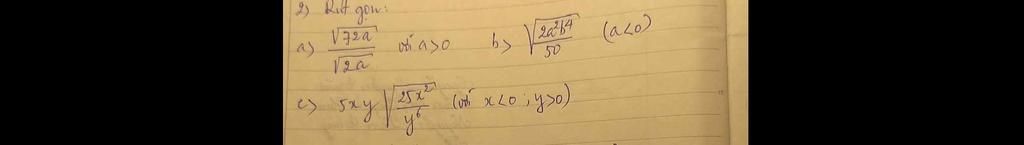 2) Rút gọn:
a) √72a / √2a với a>0 b) √(2a²b⁴/50) (a<0)
c) 5xy √(25x²/y⁶) (với x<0; y>0)